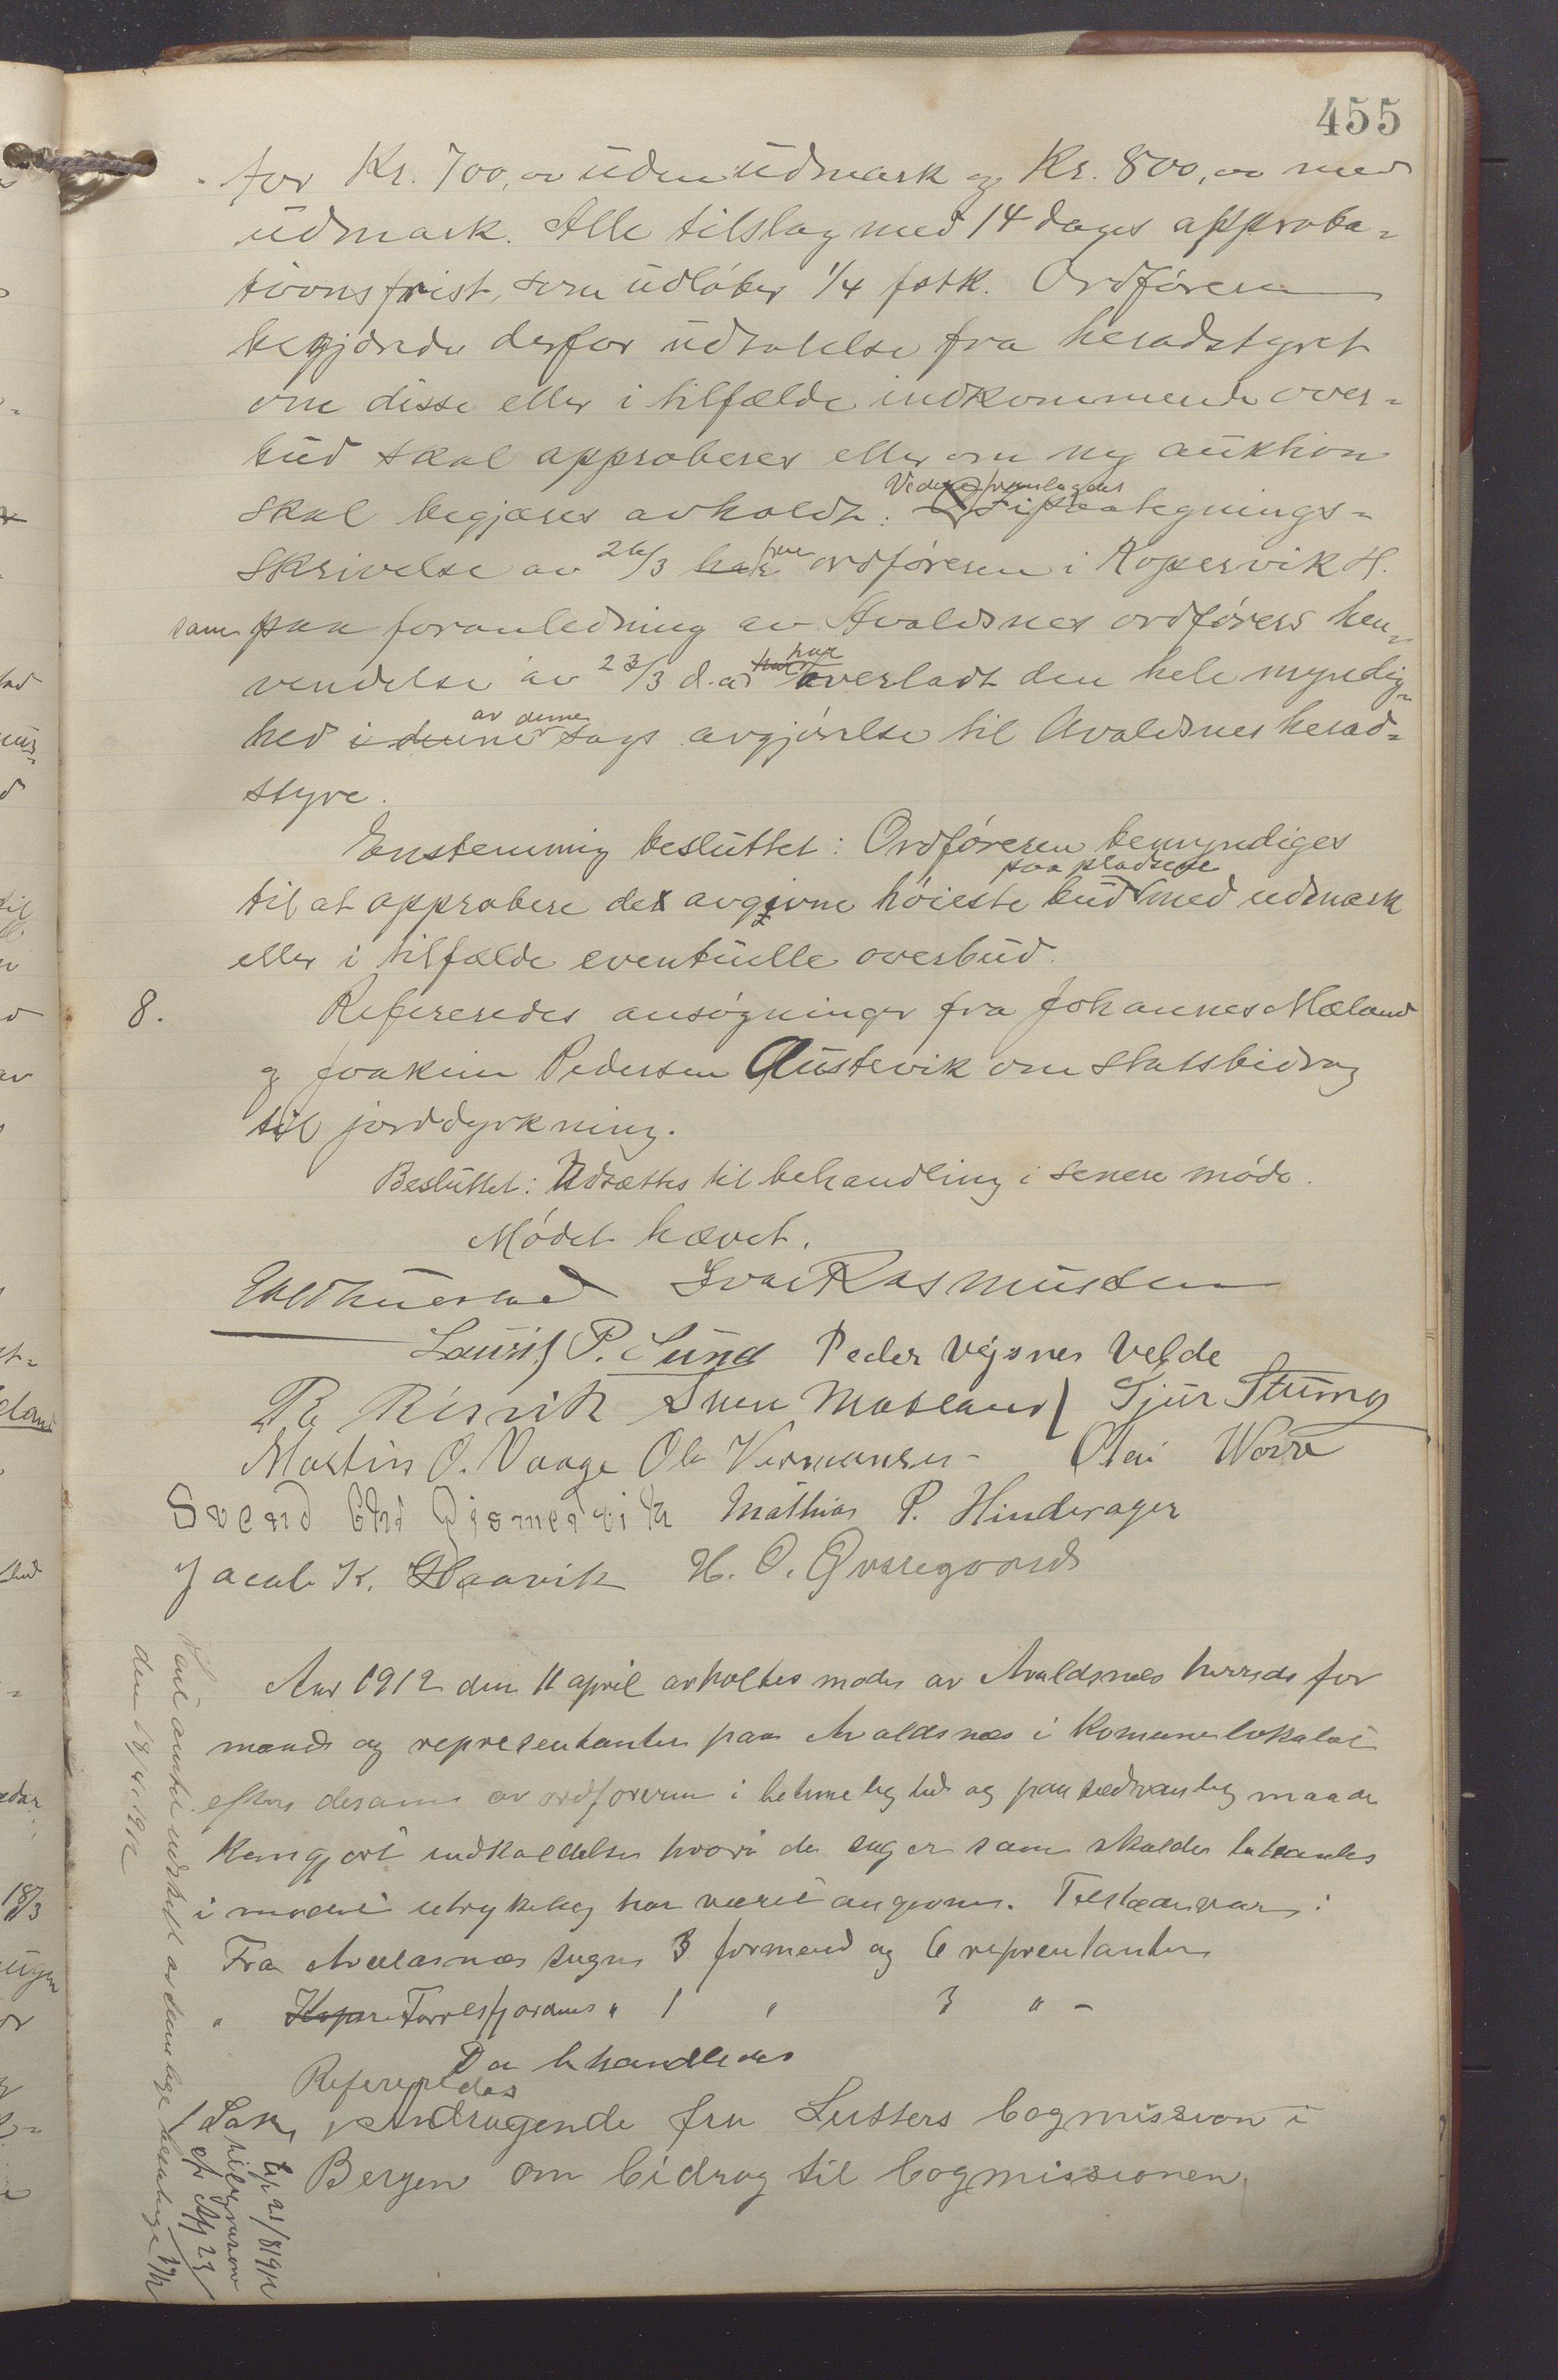 455
for Kr. 700,00 uden udmark og Kr. 800,00 med
udmark. Alle tilslag med 14 dages approba=
tionsfrist, som udløber 1/4 fstk. Ordføreren
begjærede derfor udtalelse fra heradstyret
om disse eller i tilfælde indkommende over=
bud skal approberes eller om ny auktion
skal begjæres avholdt. Videre fremlagdes paategnings=
skrivelse av 26/3 fra ordføreren i Kopervik H.
som paa foranledning av Avaldsnes ordførers hen=
vendelse av 23/3 d.a. har overladt den hele myndig=
hed i denne av denne sags avgjørelse til Avaldsnes herad=
styre.
Enstemmig besluttet: Ordføreren bemyndiges
til at approbere det avgivne høieste bud paa pladsene med udmark
eller i tilfælde eventuelle overbud.
8. Refereredes ansøgninger fra Johannes Mæland
og Joakim Pedersen Austevik om statsbidrag
til jorddyrkning.
Besluttet: Udsættes til behandling i senere møde.
Mødet hævet.
Ivar Rasmussen
Laurits P. Lund Peder Vejsnes Velde
Risvik Sven Mæland Sjur Stumo
Martin O. Vaage Ole Vermansen Olai Worre
Svend Mathias P. Hinderager
Jacob K. Haavik H. O. Øvregaard
Aar 1912 den 11 april avholtes møde av Avaldsnes herreds for
mænd og representanter paa Avaldsnes i Komunelokalet
efter desam av ordføreren i betimelig tid og paa sædvanlig maade
kungjort indkaldelse hvori de sager som skulde behandles
i mødet utrykelig har været angivne. Tilstæde var:
Fra Avaldsnæs sogn 3 formend og 6 reprentanter
" Kopre Torvestfjordens " 1 " 3 " -
Da behandledes
Refereredes
1 Sak, Andragende fra Luthers bogmission i
Bergen om bidrag til bogmissionen
den 18/4 1912